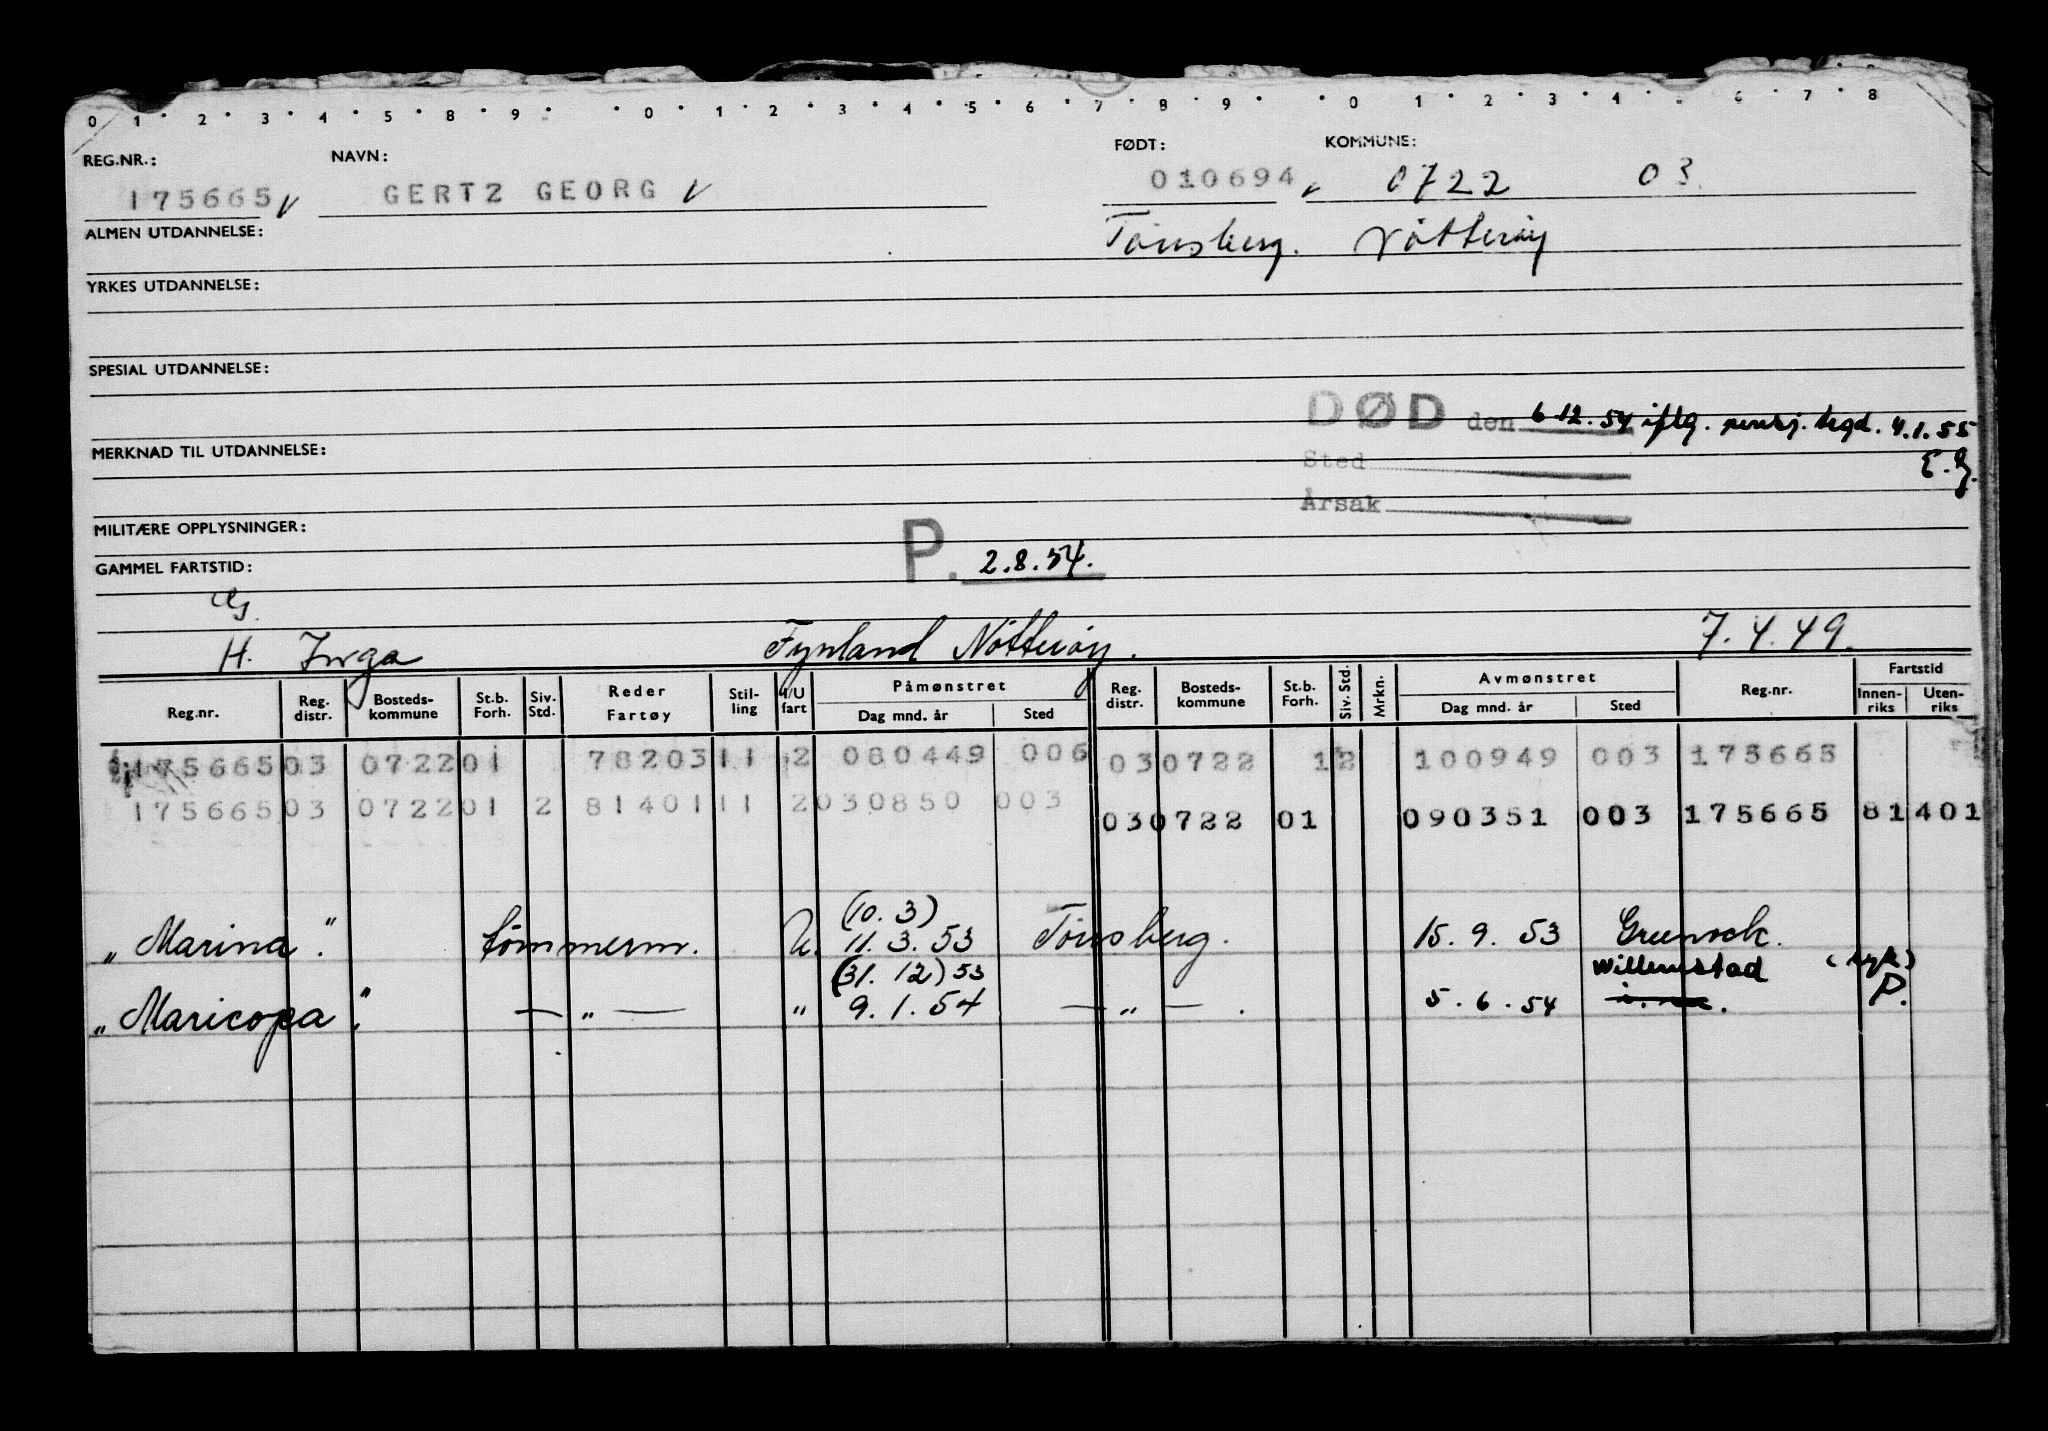 0 1 2 3 4 5 6 7 8 9 0 1 2 3 4 5 6 7 8 9 0 1 2 3 4 5 6 7 8
REG.NR.: NAVN: FØDT: KOMMUNE:
175665 √ GERTZ GEORG √ 010694 √ 0722 03
ALMEN UTDANNELSE: Tönsberg. Nötteröy
YRKES UTDANNELSE:
SPESIAL UTDANNELSE:
DØD den 6.12.54 iflg. pensj. trgd. 4.1.55
MERKNAD TIL UTDANNELSE: Sted E.G.
Årsak
MILITÆRE OPPLYSNINGER:
GAMMEL FARTSTID: P. 2.8.54.
G.
H. Inga Fynland Nötteröy. 7.4.49.
Reg.nr. Reg. distr. Bosteds-kommune St.b. Forh. Siv. Std. Reder Fartøy Stil-ling I/U fart Påmønstret Dag mnd. år Sted Reg. distr. Bosteds-kommune St.b. Forh. Siv. Std. Mrkn. Avmønstret Dag mnd. år Sted Reg.nr. Fartstid Innen-riks Uten-riks
175665 03 0722 01 78203 11 2 080449 006 03 0722 12 100949 003 175665
175665 03 0722 01 2 81401 11 2 030850 003 03 0722 01 090351 003 175665 81 401
(10. 3)
„Marina". tömmerm. U. 11. 3. 53 Tönsberg. 15. 9. 53 Greenock.
(31. 12) 53 Willemstad (syk)
„Maricopa". — „ — „ 9. 1. 54 — „ — . 5. 6. 54 P.